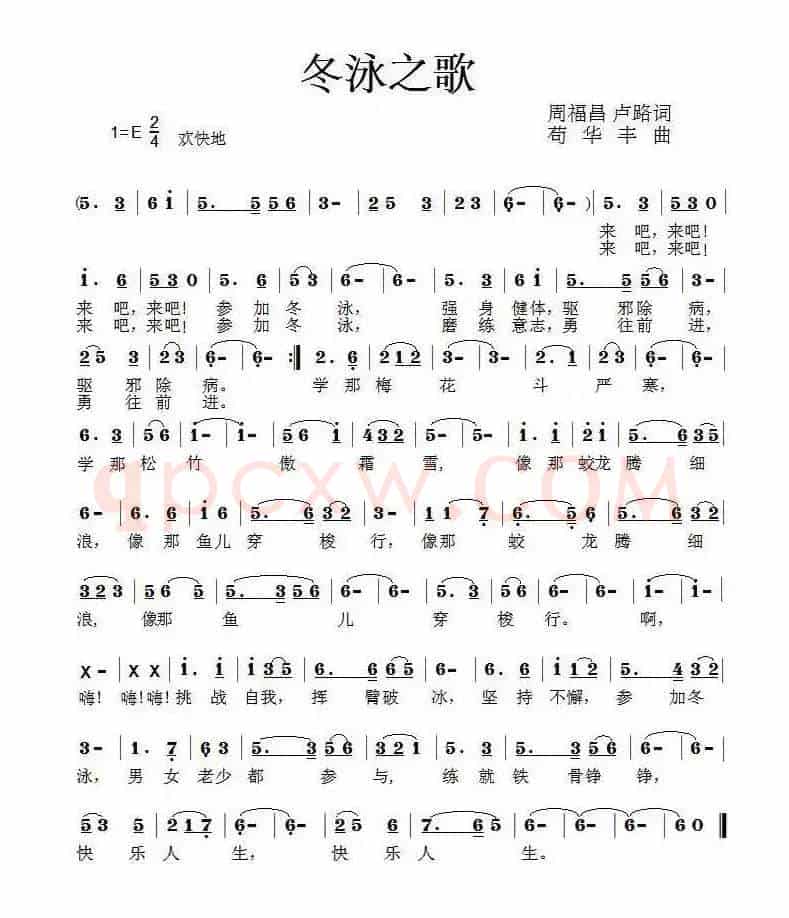 冬泳之歌
周福昌 卢路词
1=E 2/4 欢快地
苟 华 丰 曲
(5. 3 | 6 i | 5. 5 5 5 6 | 3- | 2 5 3 | 2 3 | 6- | 6- ) | 5. 3 | 5 3 0 |
来 吧，来吧！
来 吧，来吧！
i. 6 | 5 3 0 | 5. 6 | 5 3 | 6- | 6- | 3. 5 | 6 i | 5. 5 5 6 | 3- |
来 吧，来吧！ 参 加 冬 泳， 强 身 健体，驱 邪除 病，
来 吧，来吧！ 参 加 冬 泳， 磨 练 意志，勇 往前 进，
2 5 3 | 2 3 | 6- | 6- :| 2. 6 | 2 1 2 | 3- | 3- | 2. 1 | 2 3 |
驱 邪 除 病。 学 那 梅 花 斗 严 寒，
勇 往 前 进。
6. 3 | 5 6 | i- | i- | 5 6 i | 4 3 2 | 5- | 5- | i. i | 2 i | 5. 6 | 6 3 5 |
学 那 松 竹 傲 霜 雪， 像 那 蛟龙 腾 细
6- | 6. 6 | i 6 | 5. 6 | 6 3 2 | 3- | 1 1 7 | 6. 5 | 5. 6 | 6 3 2 |
浪，像 那 鱼儿 穿 梭 行，像那 蛟 龙 腾 细
3 2 3 | 5 6 5 | 5. 3 | 3 5 6 | 5. 6 | i- | 6- | 6- | i- | i- |
浪, 像那 鱼 儿 穿 梭 行。 啊，
x- | x x | i. i | i 3 5 | 6. 3 | 6 6 5 | 6- | 6. 6 | i 1 2 | 5. 4 3 2 |
嗨！ 嗨！嗨！挑 战 自我，挥 臂破 冰，坚 持 不懈，参 加冬
3- | 1. 7 | 6 3 | 5. 3 | 3 5 6 | 3 2 1 | 5. 5 | 3. 3 | 3 5 6 | 5- |
泳，男 女 老少 都 参 与, 练 就 铁 骨铮 铮，
5 3 5 | 2 1 7 | 6- | 6- | 2 5 6 | 7. 6 5 | 6- | 6- | 6- | 6 0 ‖
快 乐 人 生， 快 乐 人 生。
qpcxw.COM